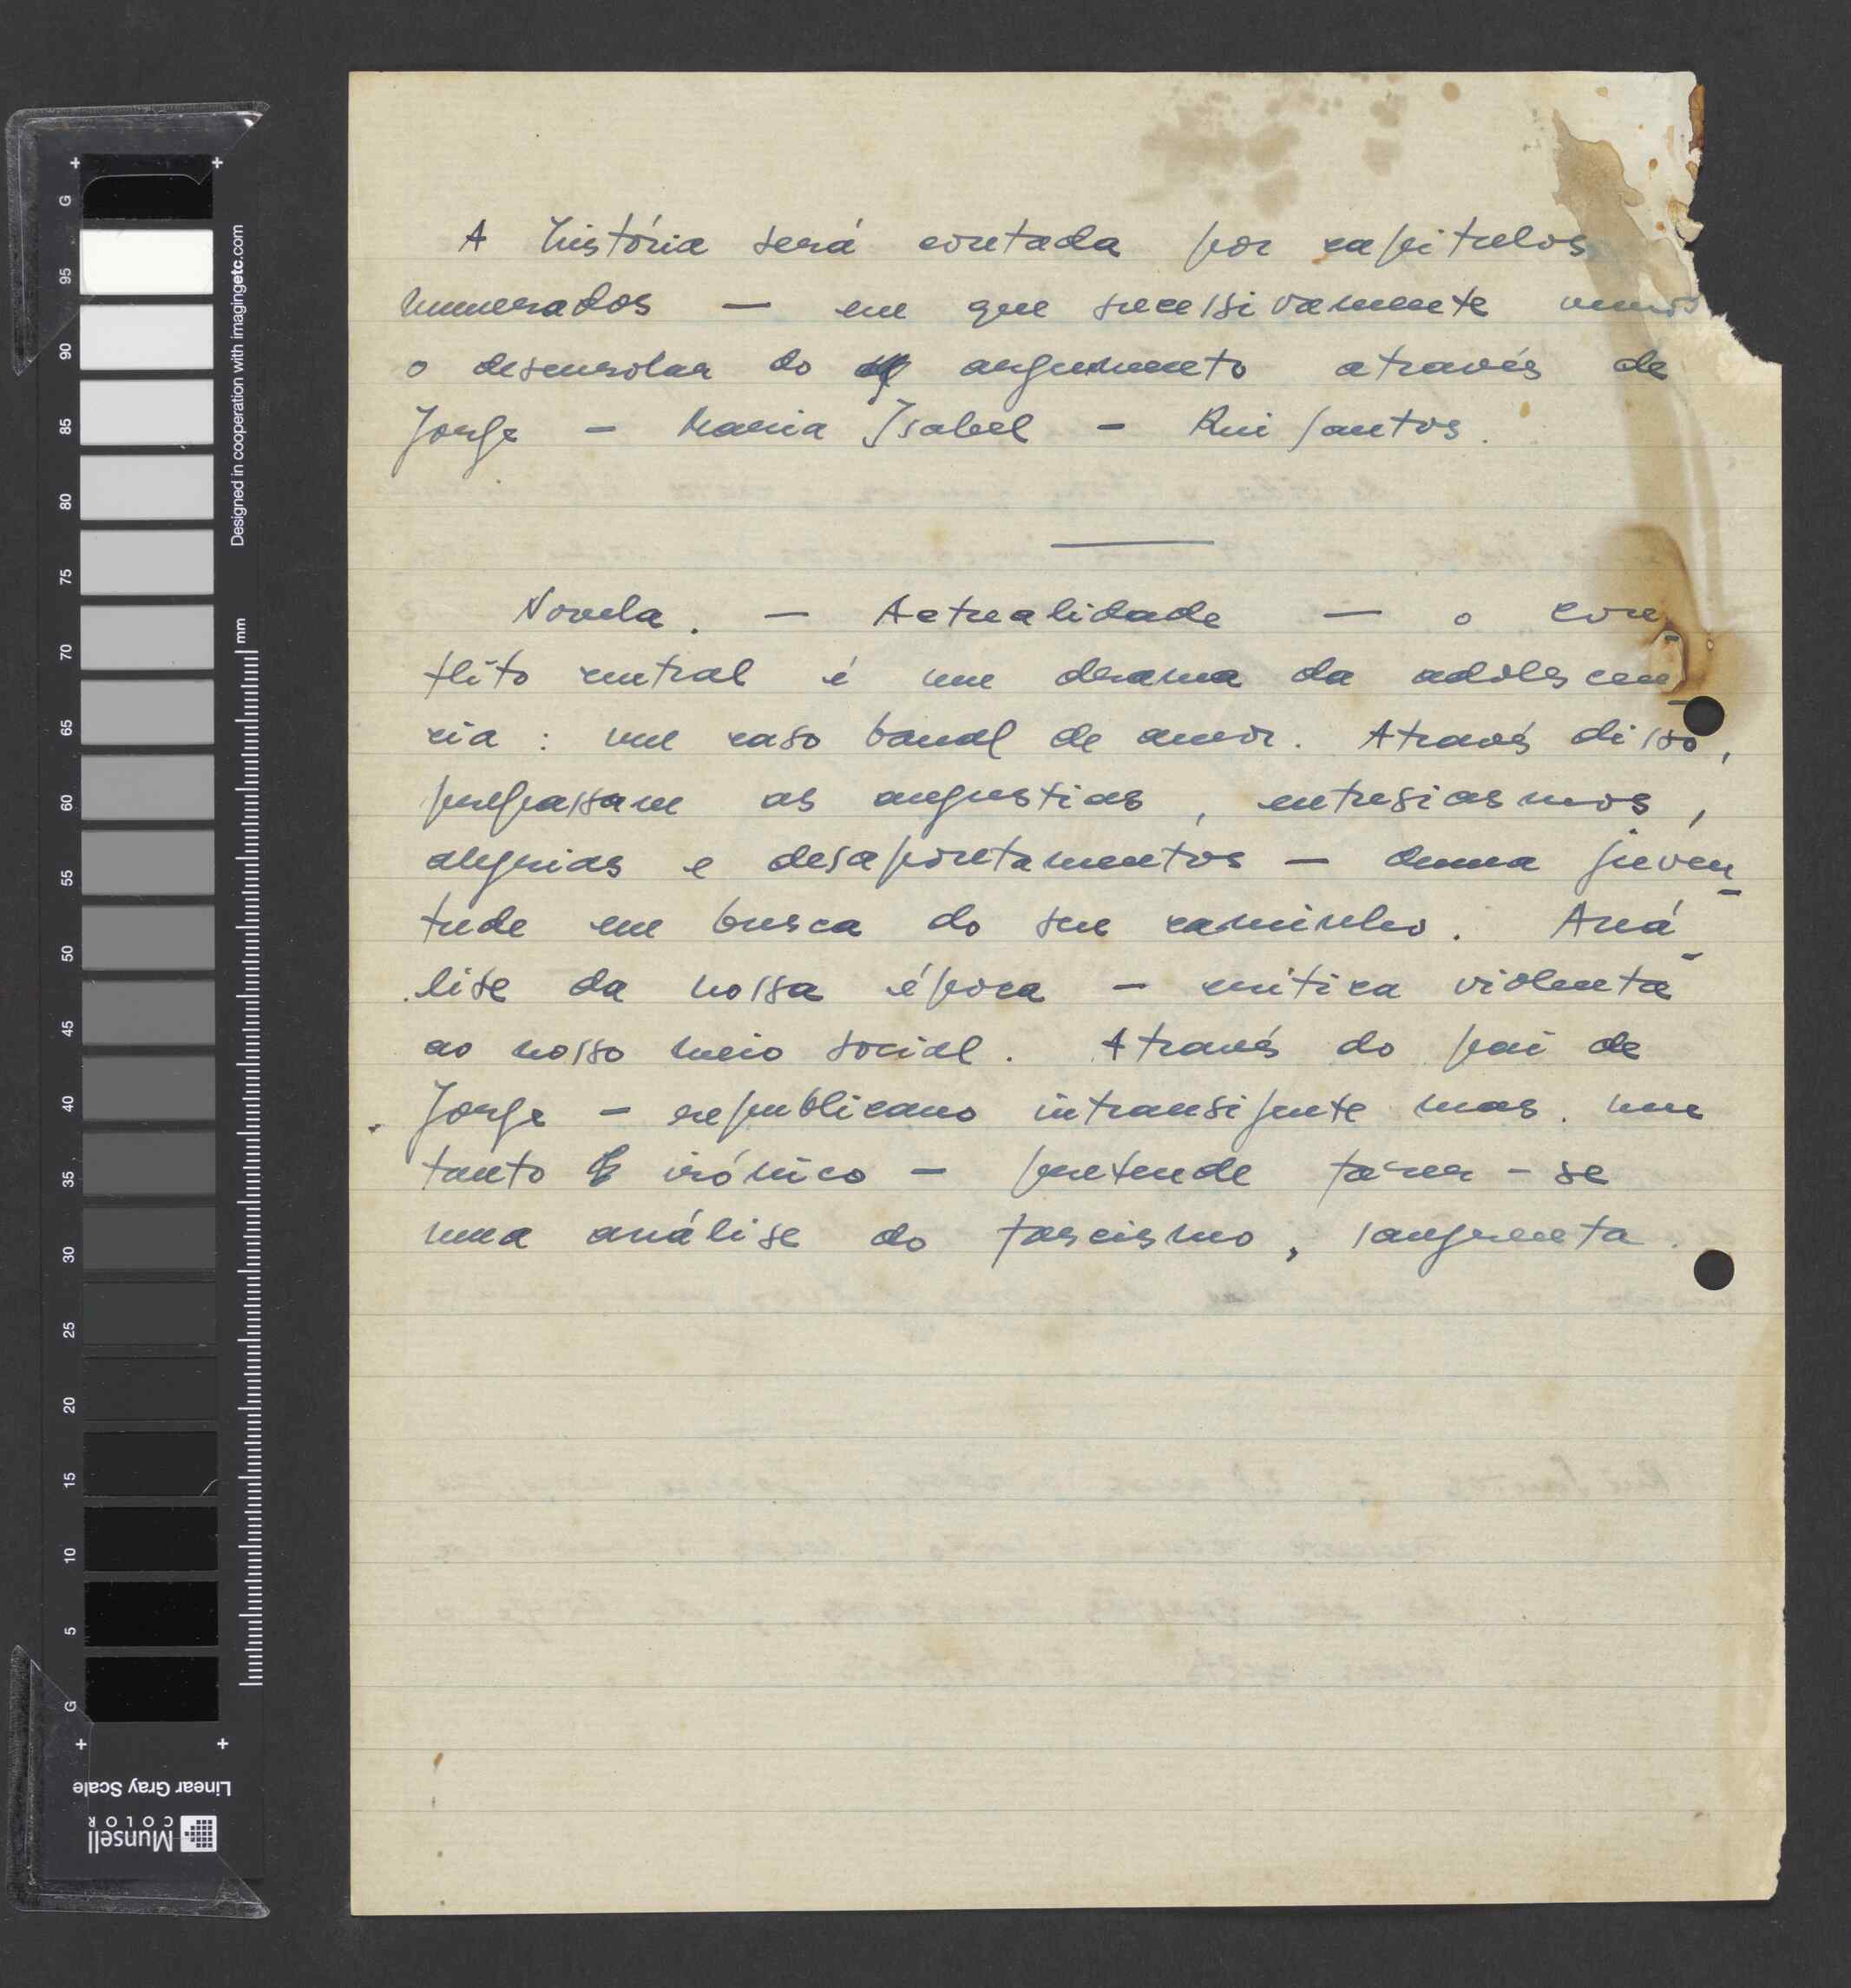 A história será contada por capitulos
numerados — em que sucessivamente vemos
o desenrolar do argumento através de
Jorge — Maria Isabel — Rui Santos.
Novela. — Actualidade — o con-
flito central é um drama da adolescen-
cia : um caso banal de amor. Através disso,
perpassam as angustias, entusiasmos,
alegrias e desapontamentos — duma juven-
tude em busca do seu caminho. Aná-
lise da nossa época — critica violenta
ao nosso meio social. Através do pai de
Jorge — republicano intransigente mas um
tanto irónico — pretende fazer-se
uma análise do fascismo, sangrenta.
G
95
90
85
80
75
70
65
60
55
50
45
40
35
30
25
20
15
10
5
G
Designed in cooperation with imagingetc.com
mm
Linear Gray Scale
Munsell
COLOR